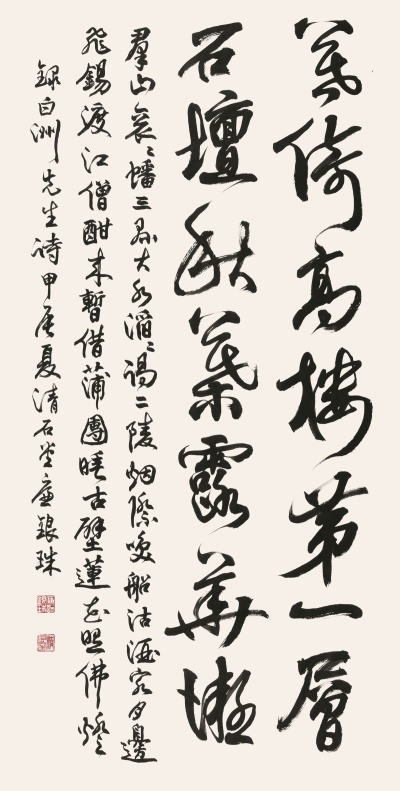 笑倚高樓第一層
石壇秋葉露華凝
羣山袞々蟠三大水滔々謁二陵烟際喚船沽酒客月邊
飛錫渡江僧酣來暫借蒲團睡古壁蓮花照佛燈
錄白洲先生詩甲辰夏清石堂廉銀珠